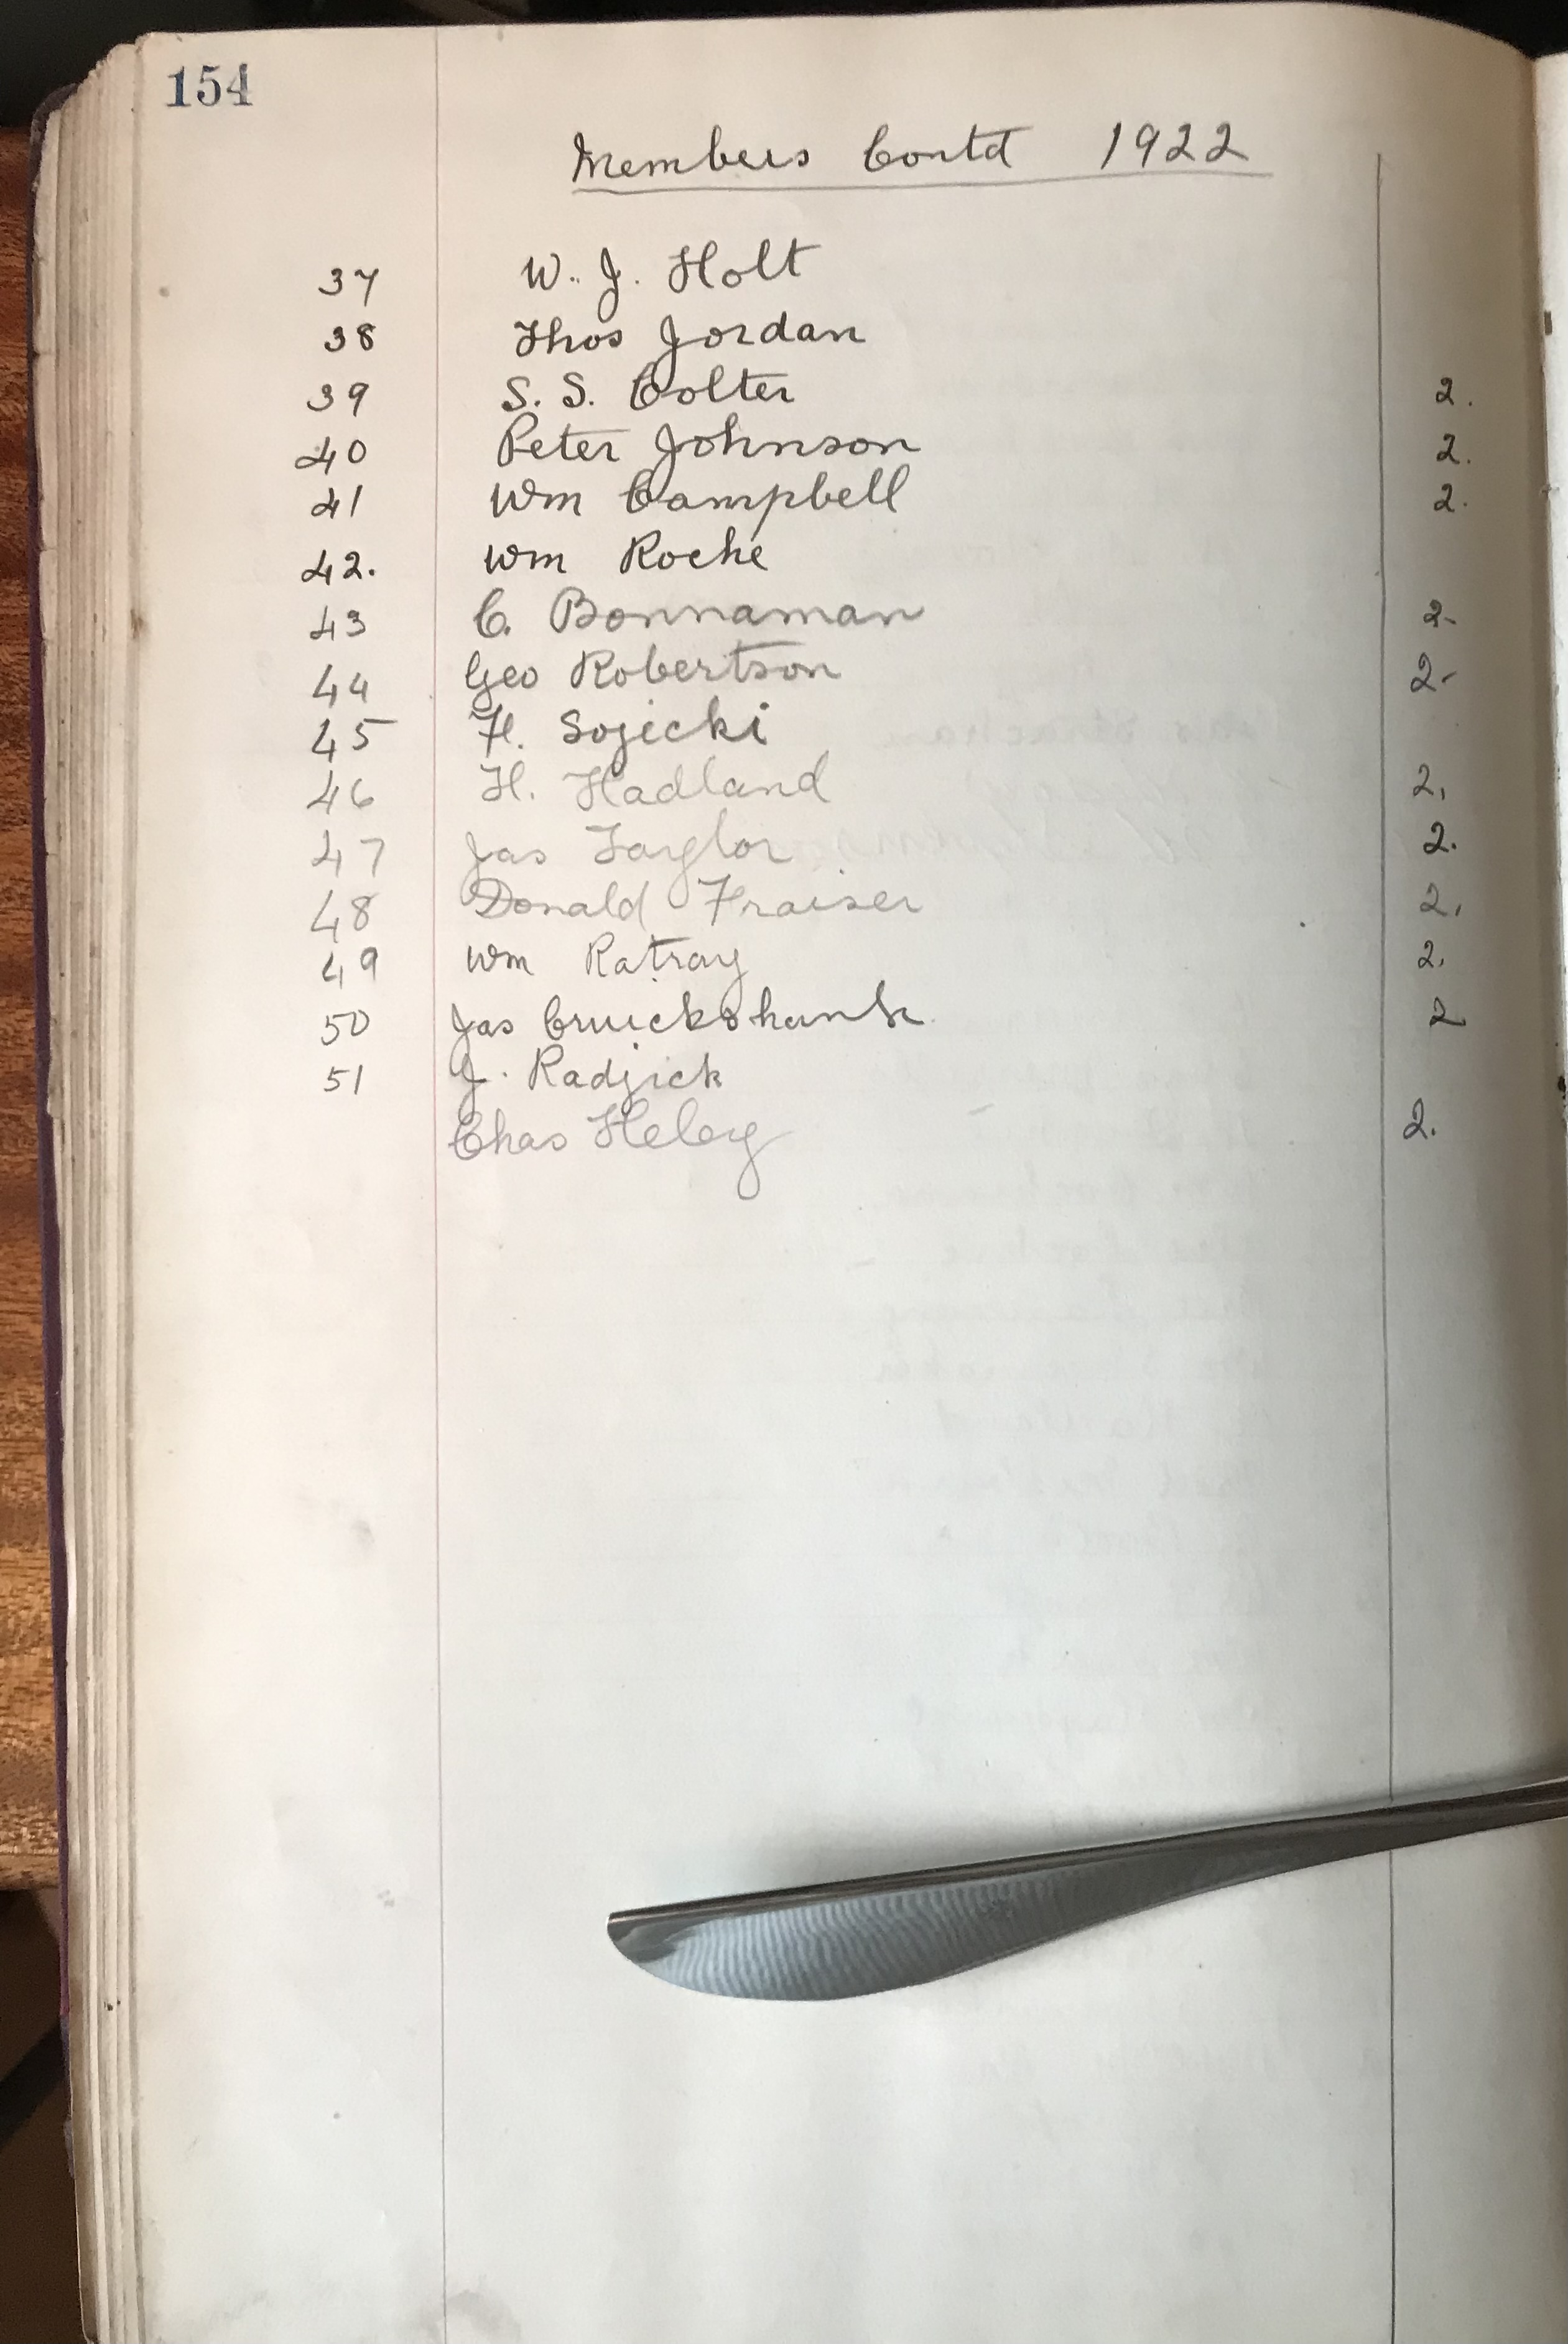 154
Members Contd 1922
37 W. J. Holt
38 Thos Jordan
39 S. S. Colter 2.
40 Peter Johnson 2.
41 Wm Campbell 2.
42. Wm Roche
43 C. Bonnaman 2-
44 Geo Robertson 2-
45 H. Sojecki
46 H. Hadland 2.
47 Jas Taylor 2.
48 Donald Fraiser 2.
49 Wm Ratray 2.
50 Jas Cruickshank 2
51 J. Radjick
Chas Heley 2.